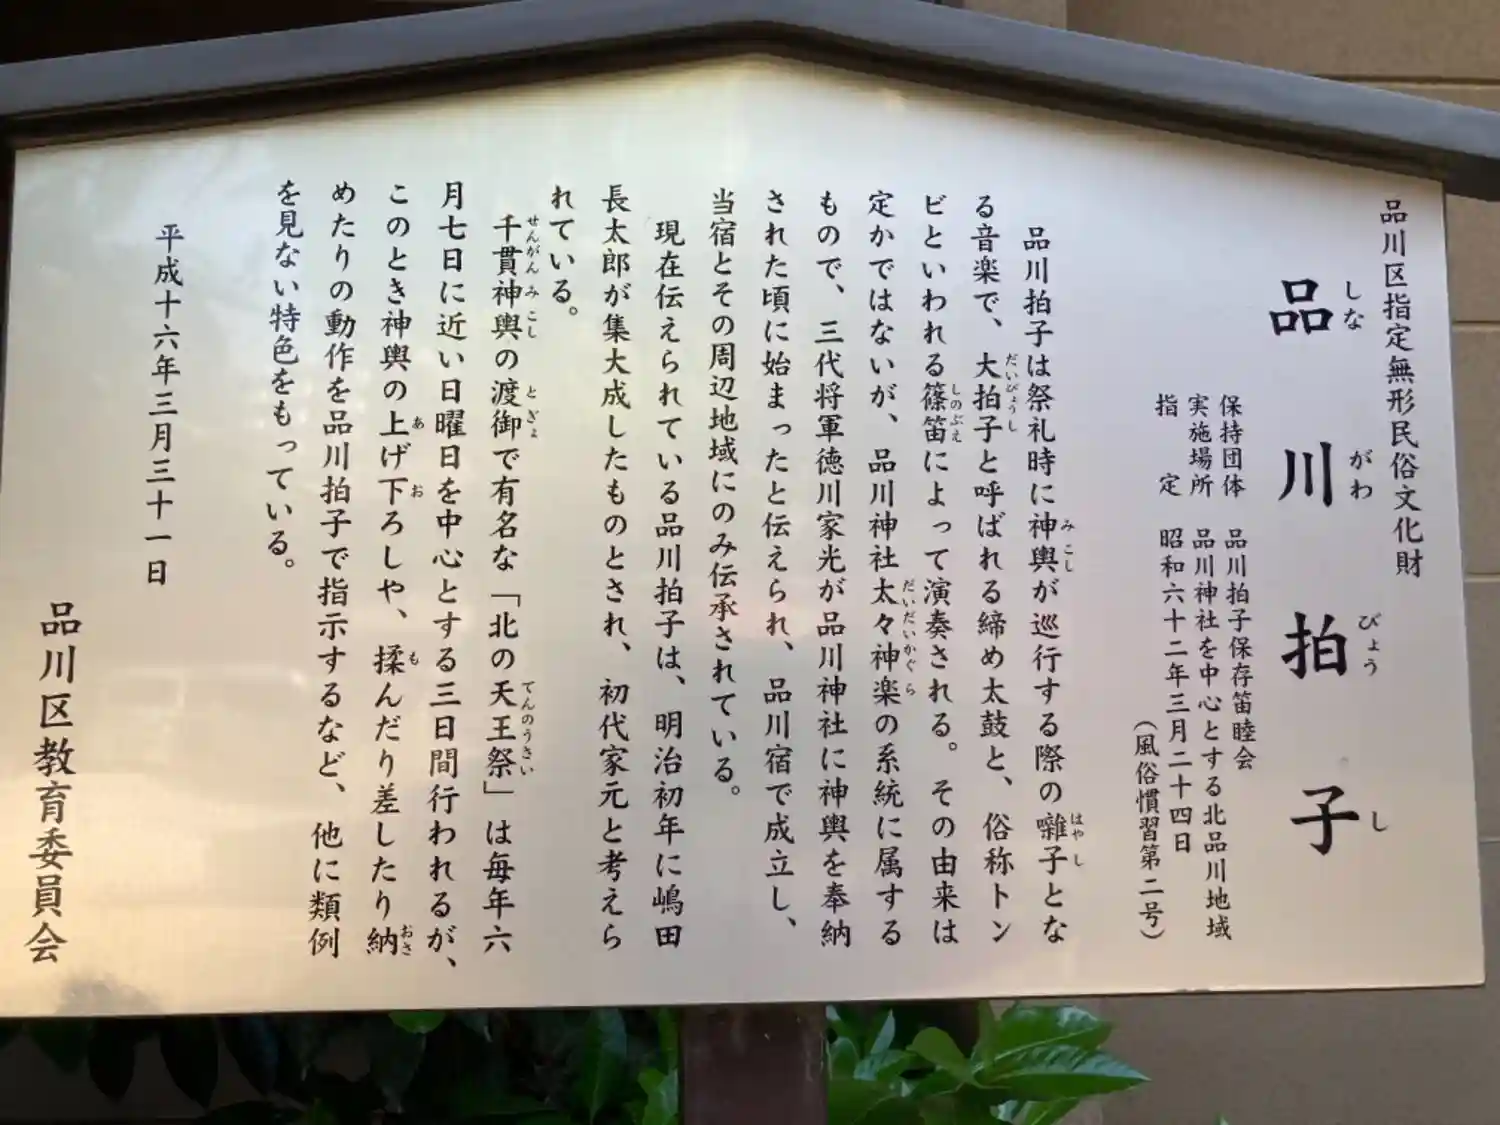 品川区指定無形民俗文化財
品川拍子
しながわびょうし
保持団体　品川拍子保存笛睦会
実施場所　品川神社を中心とする北品川地域
指　定　昭和六十二年三月二十四日
（風俗慣習第二号）
品川拍子は祭礼時に神輿が巡行する際の囃子とな
みこし　はやし
る音楽で、大拍子と呼ばれる締め太鼓と、俗称トン
だいびょうし
ビといわれる篠笛によって演奏される。その由来は
しのぶえ
定かではないが、品川神社太々神楽の系統に属する
だいだいかぐら
もので、三代将軍徳川家光が品川神社に神輿を奉納
された頃に始まったと伝えられ、品川宿で成立し、
当宿とその周辺地域にのみ伝承されている。
現在伝えられている品川拍子は、明治初年に嶋田
長太郎が集大成したものとされ、初代家元と考えら
れている。
千貫神輿の渡御で有名な「北の天王祭」は毎年六
せんがんみこし　とぎょ　てんのうさい
月七日に近い日曜日を中心とする三日間行われるが、
このとき神輿の上げ下ろしや、揉んだり差したり納
あ　お　も　おさ
めたりの動作を品川拍子で指示するなど、他に類例
を見ない特色をもっている。
平成十六年三月三十一日
品川区教育委員会